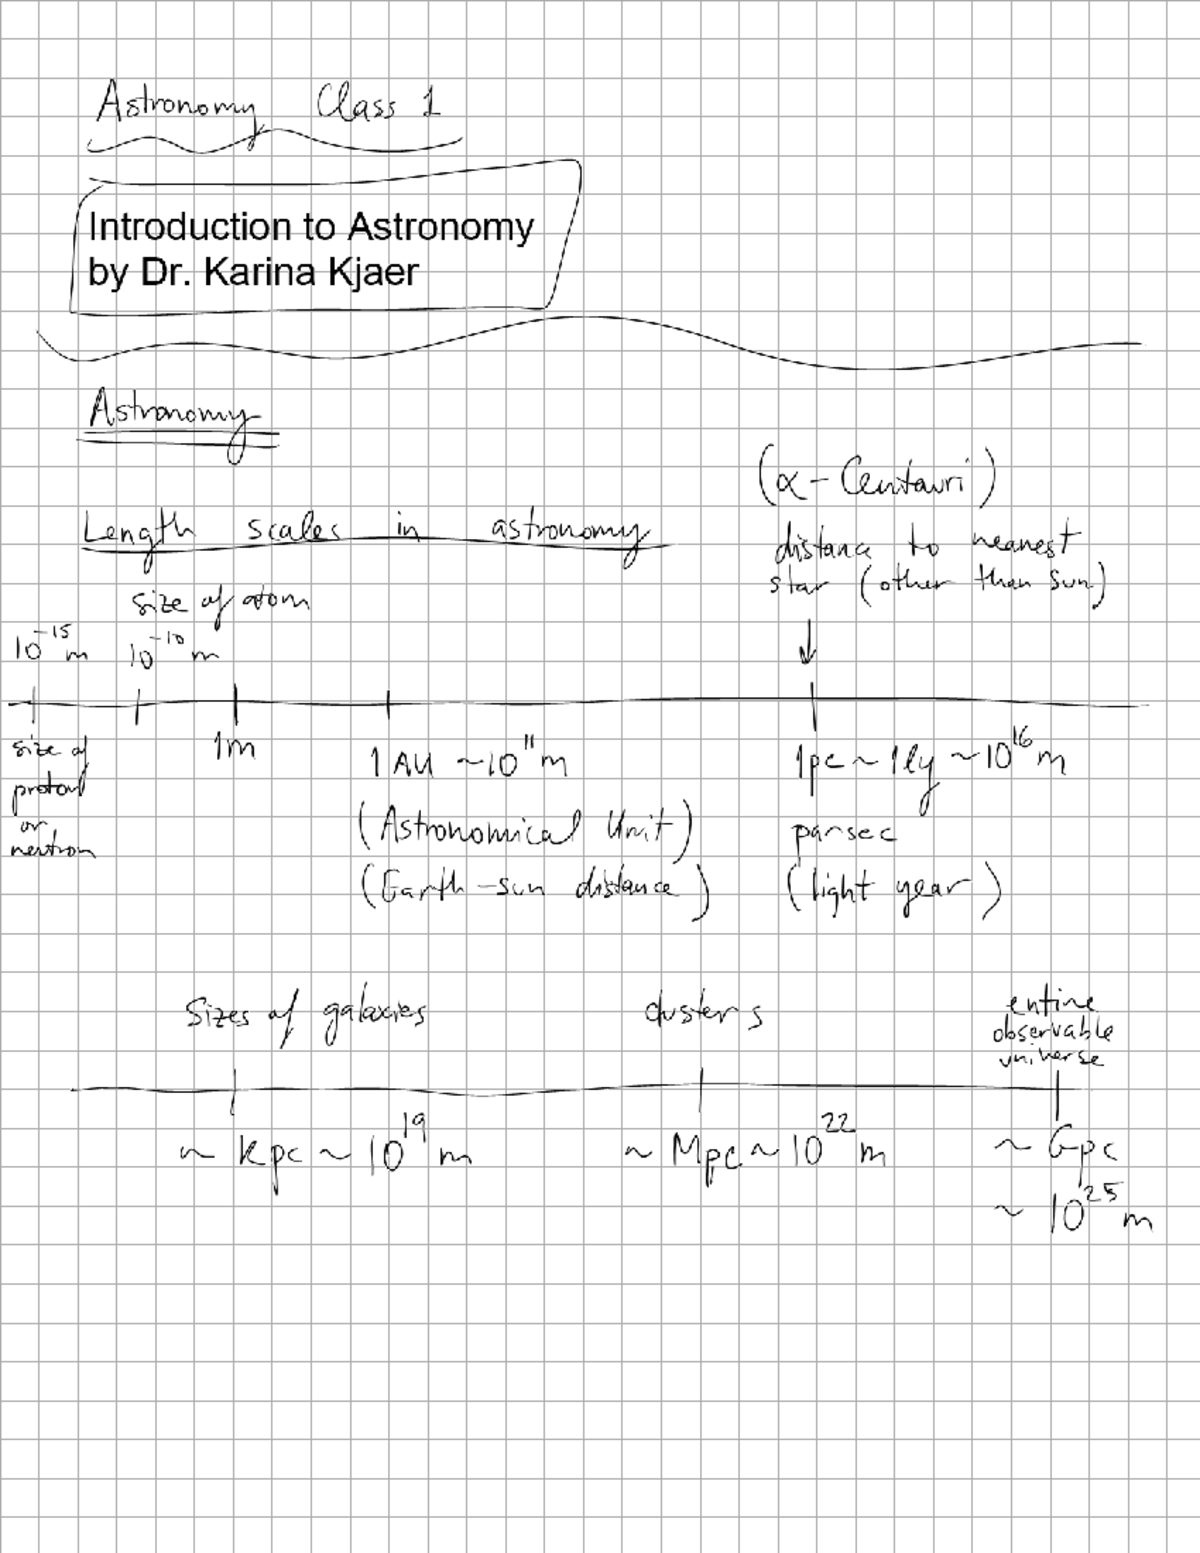 Astronomy Class 1
Introduction to Astronomy
by Dr. Karina Kjaer
Astronomy
(α - Centauri)
Length scales in astronomy
distance to nearest
star (other than Sun)
size of atom
10^-15 m 10^-10 m
↓
size of
proton
or
neutron
1m
1 AU ~10^11 m
(Astronomical Unit)
(Earth-sun distance)
1pc ~ 1ly ~10^16 m
parsec
(light year)
Sizes of galaxies
clusters
entire
observable
universe
~ kpc ~ 10^19 m
~ Mpc ~ 10^22 m
~ Gpc
~ 10^25 m